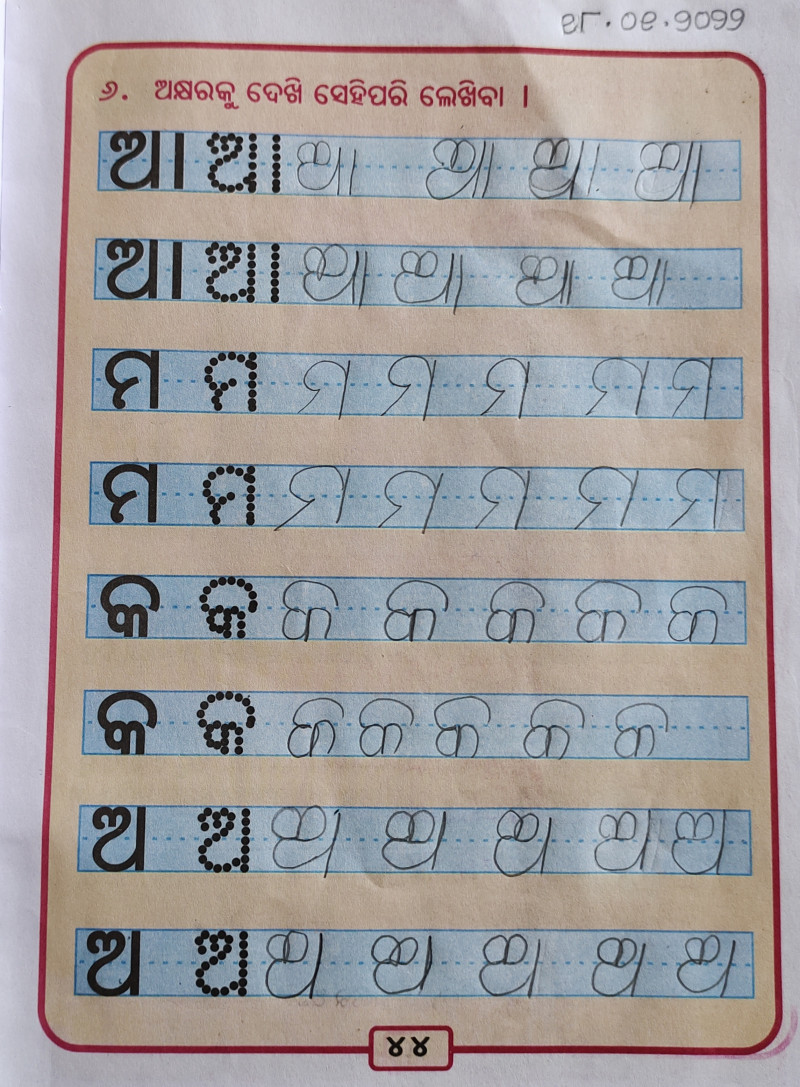 ୬. ଅକ୍ଷରକୁ ଦେଖି ସେହିପରି ଲେଖିବା ।
ଆ ଆ ଆ ଆ ଆ ଆ
ଆ ଆ ଆ ଆ ଆ ଆ
ମ ମ ମ ମ ମ ମ ମ
ମ ମ ମ ମ ମ ମ ମ
କ କ କ କ କ କ କ
କ କ କ କ କ କ କ
ଅ ଅ ଅ ଅ ଅ ଅ ଅ
ଅ ଅ ଅ ଅ ଅ ଅ ଅ
୪୪